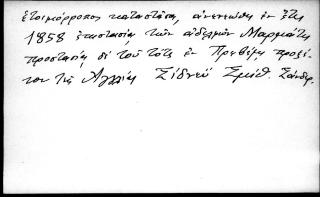 ἑτοιμόρροπος κατάστασις, ἀνενεώθη ἐν ἔτει
1858 ἐπιστασίᾳ τῶν ἀδελφῶν Μαρμάτη
προστασίᾳ δὲ τοῦ τότε ἐν Πρεβέζῃ προξέ-
νου τῆς Ἀγγλίας Σίδνεϋ Σμίθ. Σάνδρ.